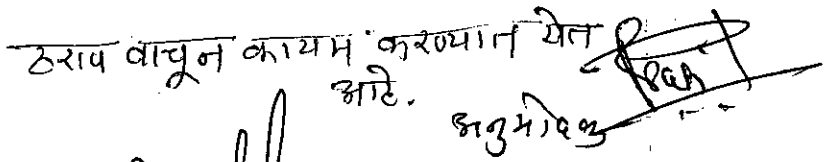 ठराव वाचून कायम करण्यात येत
आहे.
अनुमोदक